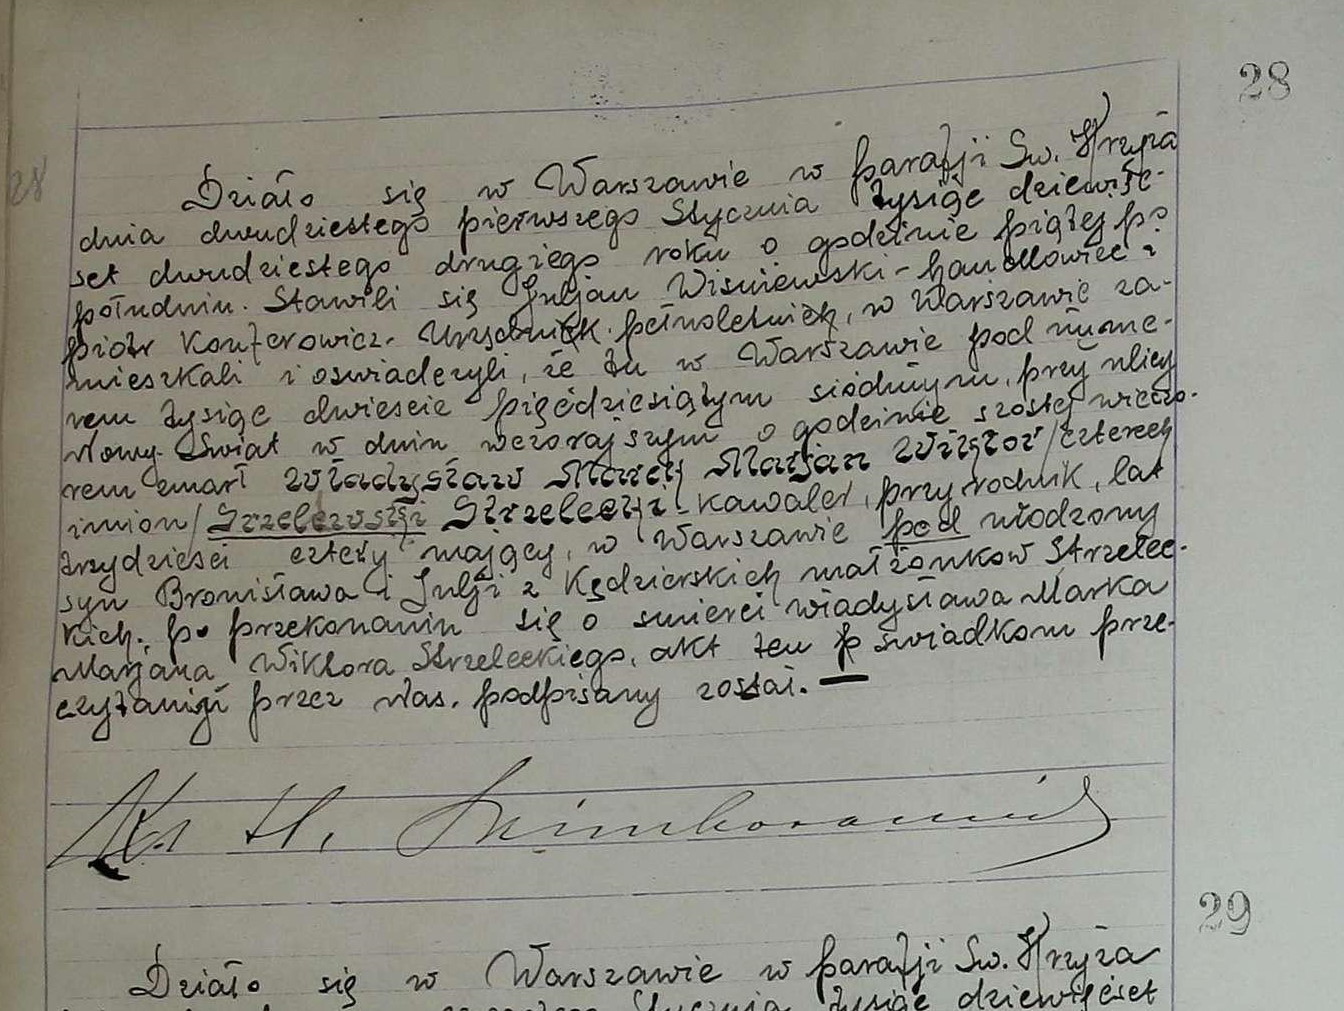 28
28
Działo się w Warszawie w parafji Św. Krzyża
dnia dwudziestego pierwszego Stycznia tysiąc dziewięć-
set dwudziestego drugiego roku o godzinie piątej po
południu. Stawili się Juljan Wiśniewski - handlowiec i
Piotr Konferowicz - Urzędnik pełnoletnich, w Warszawie za-
mieszkali i oświadczyli, że tu w Warszawie pod nume-
rem tysiąc dwieście pięćdziesiątym siódmym, przy ulicy
Nowy-Świat w dniu wczorajszym o godzinie szóstej wieczo-
rem zmarł Władysław Marek Marjan Wiktor /czterech
imion/ Strzelecki - kawaler, przyrodnik, lat
trzydzieści cztery mający, w Warszawie urodzony
syn Bronisława i Julji z Kędzierskich małżonków Strzelec-
kich. po przekonaniu się o śmierci Władysława Marka
Marjana Wiktora Strzeleckiego, akt ten świadkom prze-
czytany przez Nas. podpisany został. —
Ks H.
29
Działo się w Warszawie w parafji Św. Krzyża
Stycznia tysiąc dziewięćset